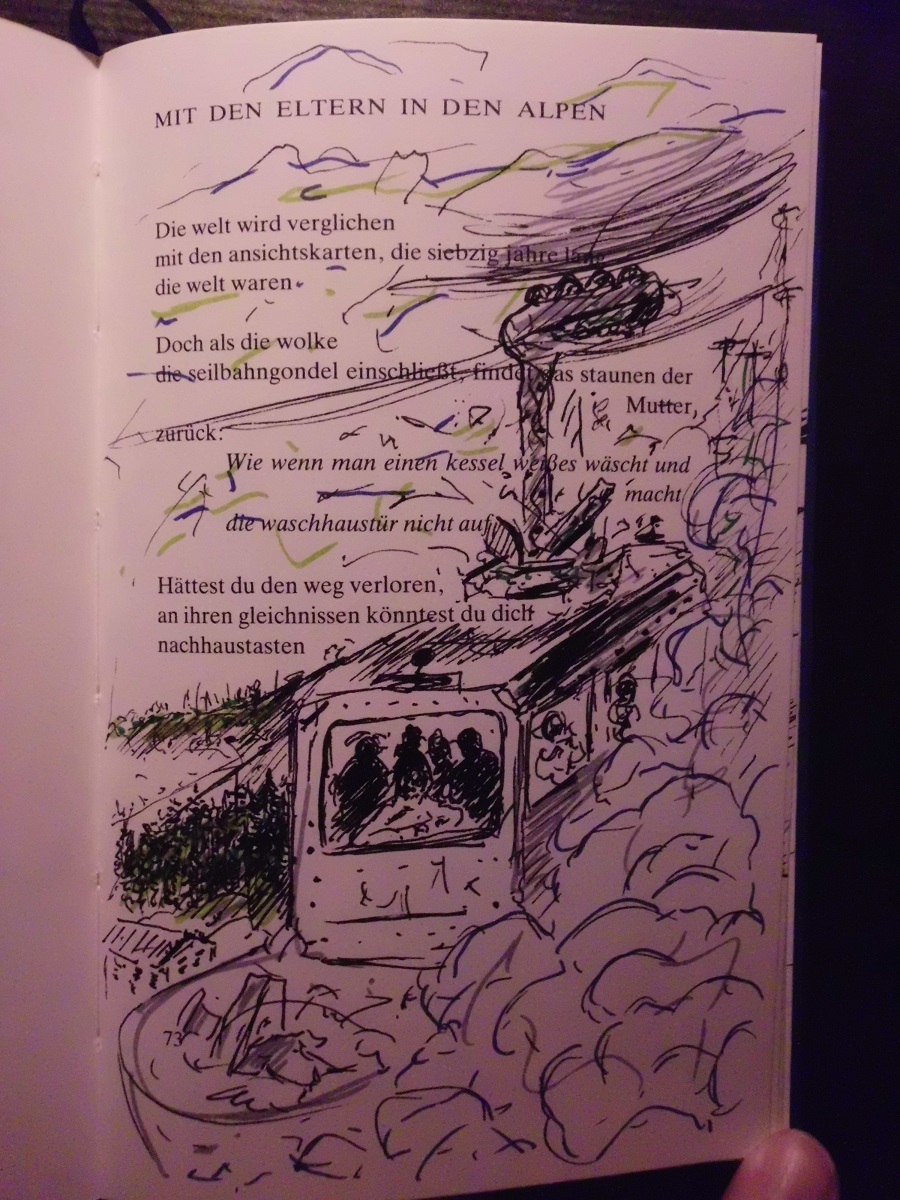 MIT DEN ELTERN IN DEN ALPEN
Die welt wird verglichen
mit den ansichtskarten, die siebzig jahre lang
die welt waren
Doch als die wolke
die seilbahngondel einschließt, findet das staunen der
Mutter,
zurück:
Wie wenn man einen kessel weißes wäscht und
macht
die waschhaustür nicht auf
Hättest du den weg verloren,
an ihren gleichnissen könntest du dich
nachhaustasten
73